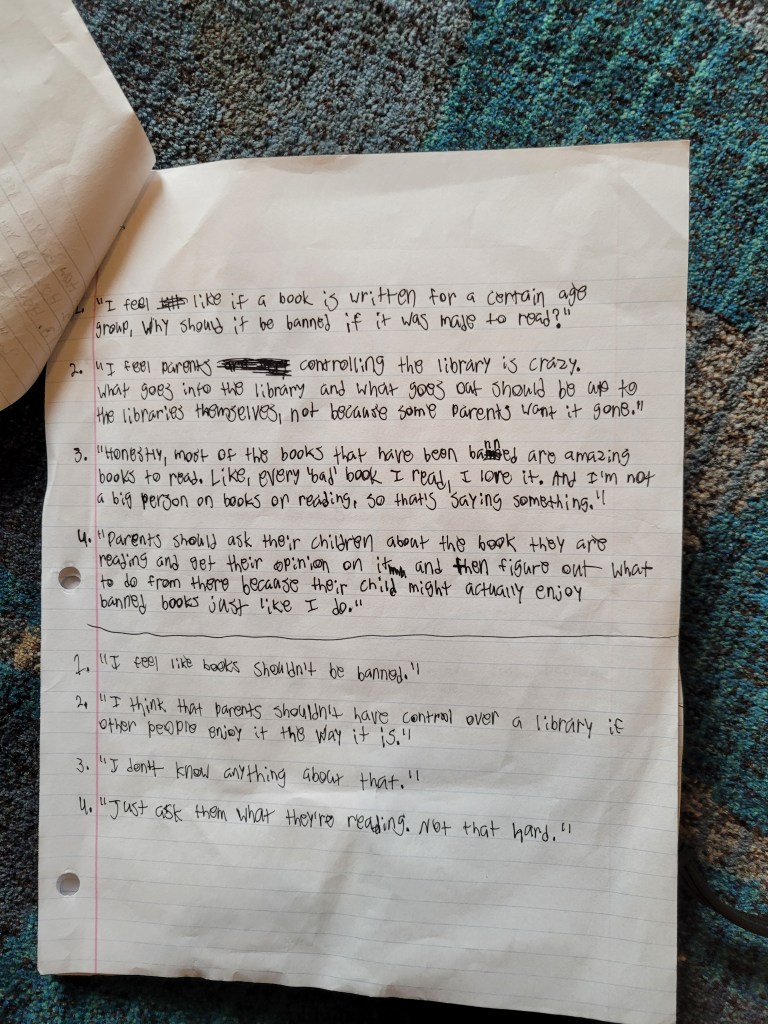 1. "I feel like if a book is written for a certain age
group, Why should it be banned if it was made to read?"
2. "I feel parents controlling the library is crazy.
What goes into the library and what goes out should be up to
the libraries themselves, not because some parents want it gone."
3. "Honestly, most of the books that have been banned are amazing
books to read. Like, every 'bad' book I read, I love it. And I'm not
a big person on books or reading, so that's saying something."
4. "Parents should ask their children about the book they are
reading and get their opinion on it and then figure out what
to do from there because their child might actually enjoy
banned books just like I do."
1. "I feel like books shouldn't be banned."
2. "I think that parents shouldn't have control over a library if
other people enjoy it the way it is."
3. "I don't know anything about that."
4. "Just ask them what they're reading. Not that hard."